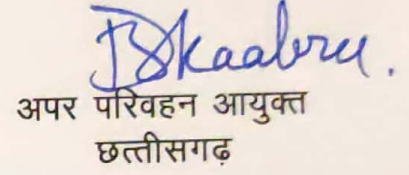 अपर परिवहन आयुक्त
छत्तीसगढ़